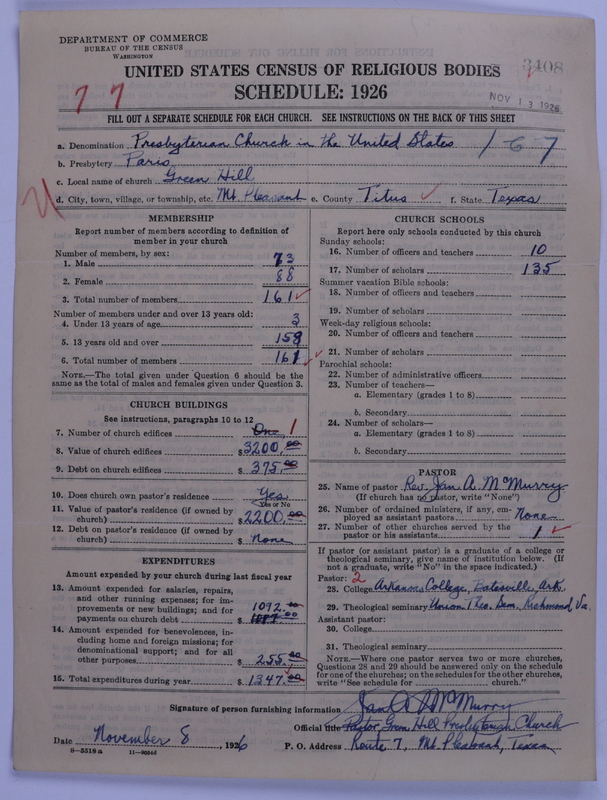 DEPARTMENT OF COMMERCE
BUREAU OF THE CENSUS
WASHINGTON
3408
UNITED STATES CENSUS OF RELIGIOUS BODIES
SCHEDULE: 1926
7 7
NOV 13 1926
FILL OUT A SEPARATE SCHEDULE FOR EACH CHURCH. SEE INSTRUCTIONS ON THE BACK OF THIS SHEET
a. Denomination Presbyterian Church in the United States 167
b. Presbytery Paris
c. Local name of church Green Hill
d. City, town, village, or township, etc. Mt. Pleasant e. County Titus f. State Texas
MEMBERSHIP
Report number of members according to definition of
member in your church
Number of members, by sex:
1. Male 73
2. Female 88
3. Total number of members 161
Number of members under and over 13 years old:
4. Under 13 years of age 3
5. 13 years old and over 158
6. Total number of members 161
NOTE.—The total given under Question 6 should be
same as the total of males and females given under Question 3.
CHURCH BUILDINGS
See instructions, paragraphs 10 to 12
7. Number of church edifices One 1
8. Value of church edifices $3200.00
9. Debt on church edifices $375.00
10. Does church own pastor's residence Yes
Yes or No
11. Value of pastor's residence (if owned by
church) $2200.00
12. Debt on pastor's residence (if owned by
church) $ None
EXPENDITURES
Amount expended by your church during last fiscal year
13. Amount expended for salaries, repairs,
and other running expenses; for im-
provements or new buildings; and for
payments on church debt $ 1092.00
14. Amount expended for benevolences, in-
cluding home and foreign missions; for
denominational support; and for all
other purposes $ 255.00
15. Total expenditures during year $ 1347.00
CHURCH SCHOOLS
Report here only schools conducted by this church
Sunday schools:
16. Number of officers and teachers 10
17. Number of scholars 135
Summer vacation Bible schools:
18. Number of officers and teachers
19. Number of scholars
Week-day religious schools:
20. Number of officers and teachers
21. Number of scholars
Parochial schools:
22. Number of administrative officers
23. Number of teachers—
a. Elementary (grades 1 to 8)
b. Secondary
24. Number of scholars—
a. Elementary (grades 1 to 8)
b. Secondary
PASTOR
25. Name of pastor Rev. Jan A. McMurry
(If church has no pastor, write "None")
26. Number of ordained ministers, if any, em-
ployed as assistant pastors None
27. Number of other churches served by the
pastor or his assistants 1
If pastor (or assistant pastor) is a graduate of a college or
theological seminary, give name of institution below. (If
not a graduate, write "No" in the space indicated.)
Pastor: 2
28. College Arkansas College, Batesville, Ark.
29. Theological seminary Union Theo. Sem. Richmond, Va.
Assistant pastor:
30. College
31. Theological seminary
NOTE.—Where one pastor serves two or more churches,
Questions 28 and 29 should be answered only on the schedule
for one of the churches; on the schedules for the other churches,
write "See schedule for church."
Signature of person furnishing information Jan A McMurry
Official title Pastor Green Hill Presbyterian Church
Date November 8, 1926 P. O. Address Route 7, Mt. Pleasant, Texas
8-5518a 11-90846